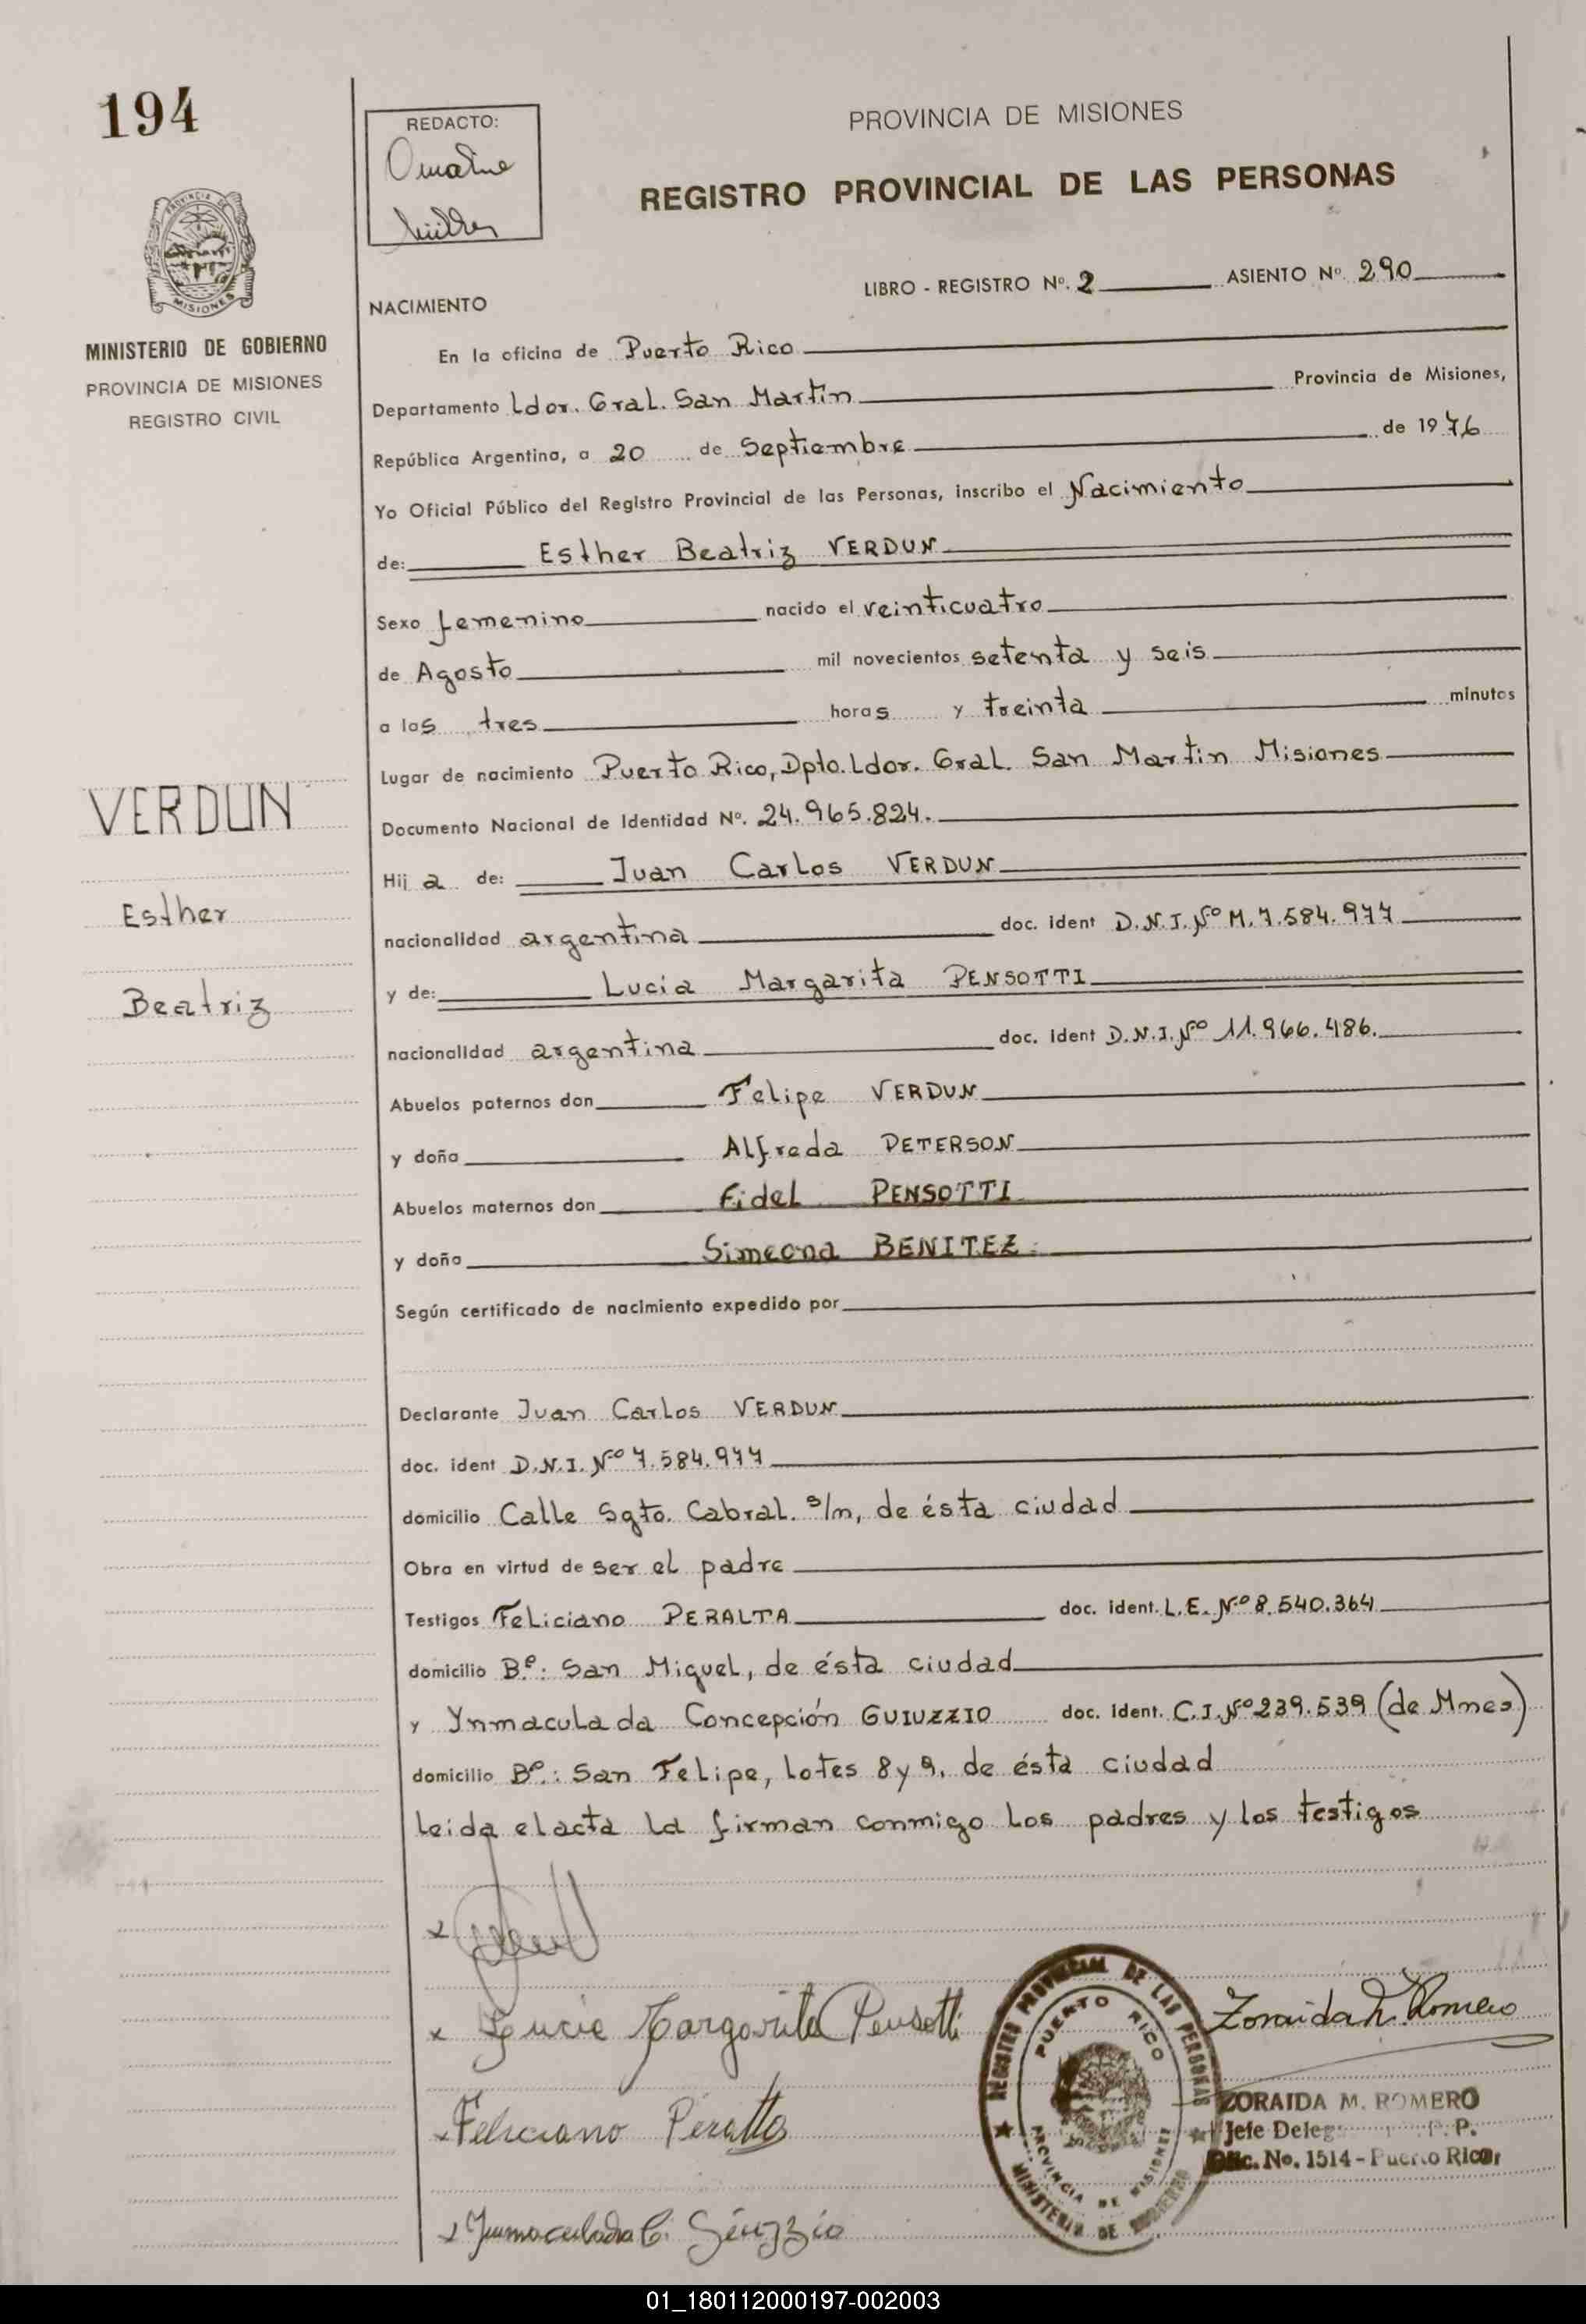 194
REDACTO:
PROVINCIA DE MISIONES
REGISTRO PROVINCIAL DE LAS PERSONAS
PROVINCIA DE
MISIONES
MINISTERIO DE GOBIERNO
PROVINCIA DE MISIONES
REGISTRO CIVIL
LIBRO - REGISTRO Nº. 2 ASIENTO Nº. 290
NACIMIENTO
En la oficina de Puerto Rico
Departamento Ldor. Gral. San Martin Provincia de Misiones,
República Argentina, a 20 de Septiembre de 1976
Yo Oficial Público del Registro Provincial de las Personas, inscribo el Nacimiento
de: Esther Beatriz VERDUN
Sexo femenino nacido el veinticuatro
de Agosto mil novecientos setenta y seis
a las tres horas y treinta minutos
Lugar de nacimiento Puerto Rico, Dpto. Ldor. Gral. San Martin Misiones
Documento Nacional de Identidad Nº. 24.965.824.
VERDUN
Esther
Beatriz
Hija de: Juan Carlos VERDUN
nacionalidad argentina doc. ident D.N.I. Nº M. 7.584.977
y de: Lucia Margarita PENSOTTI
nacionalidad argentina doc. ident D.N.I. Nº 11.966.486.
Abuelos paternos don Felipe VERDUN
y doña Alfreda PETERSON
Abuelos maternos don Fidel PENSOTTI
y doña Simeona BENITEZ
Según certificado de nacimiento expedido por
Declarante Juan Carlos VERDUN
doc. ident D.N.I. Nº 7.584.977
domicilio Calle Sgto. Cabral. s/n, de ésta ciudad
Obra en virtud de ser el padre
Testigos Feliciano PERALTA doc. ident. L.E. Nº 8.540.364
domicilio Bº: San Miguel, de ésta ciudad
y Ynmaculada Concepción GUIUZZIO doc. ident. C.I. Nº 239.539 (de Mnes)
domicilio Bº: San Felipe, lotes 8 y 9. de ésta ciudad
leida el acta la firman conmigo los padres y los testigos
Lucia Margarita Pensotti
Zoraida M. Romero
Feliciano Peralta
REGISTRO PROVINCIAL DE LAS PERSONAS
PUERTO RICO
PROVINCIA DE MISIONES
MINISTERIO DE GOBIERNO
ZORAIDA M. ROMERO
Jefe Deleg P.
Ofic. No. 1514 - Puerto Rico
01_180112000197-002003